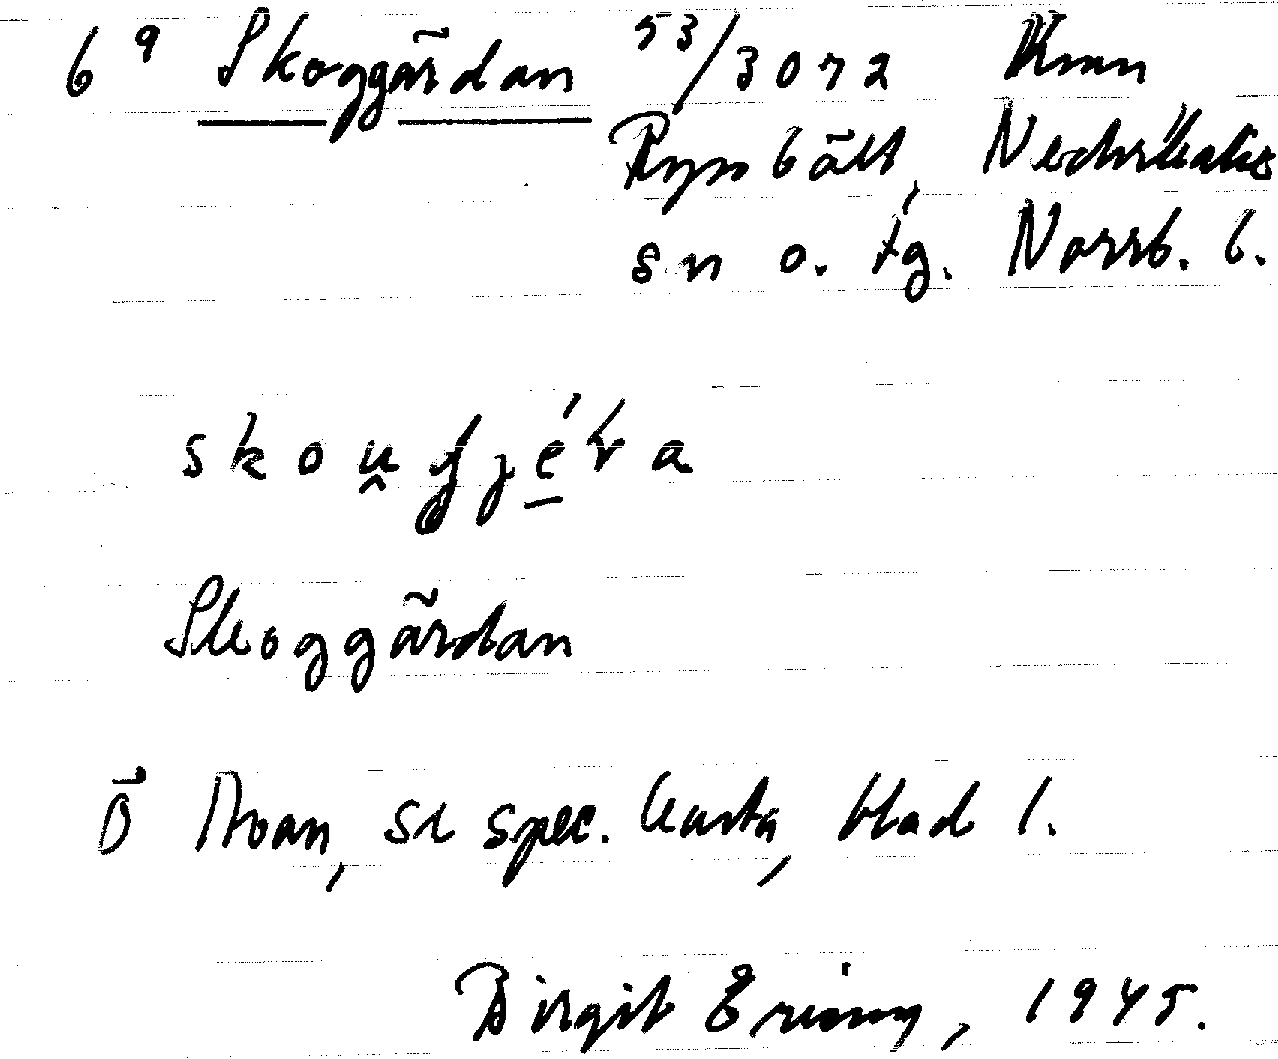 6 9 Skoggärdan 53/3072 Hman
Rymbäll, Nederkalix
sn o. tg. Norrb. l.
skou̯gjé̠ra
Skoggärdan
Ö Åvan, se spec. karta, blad 1.
Birgit 1945.